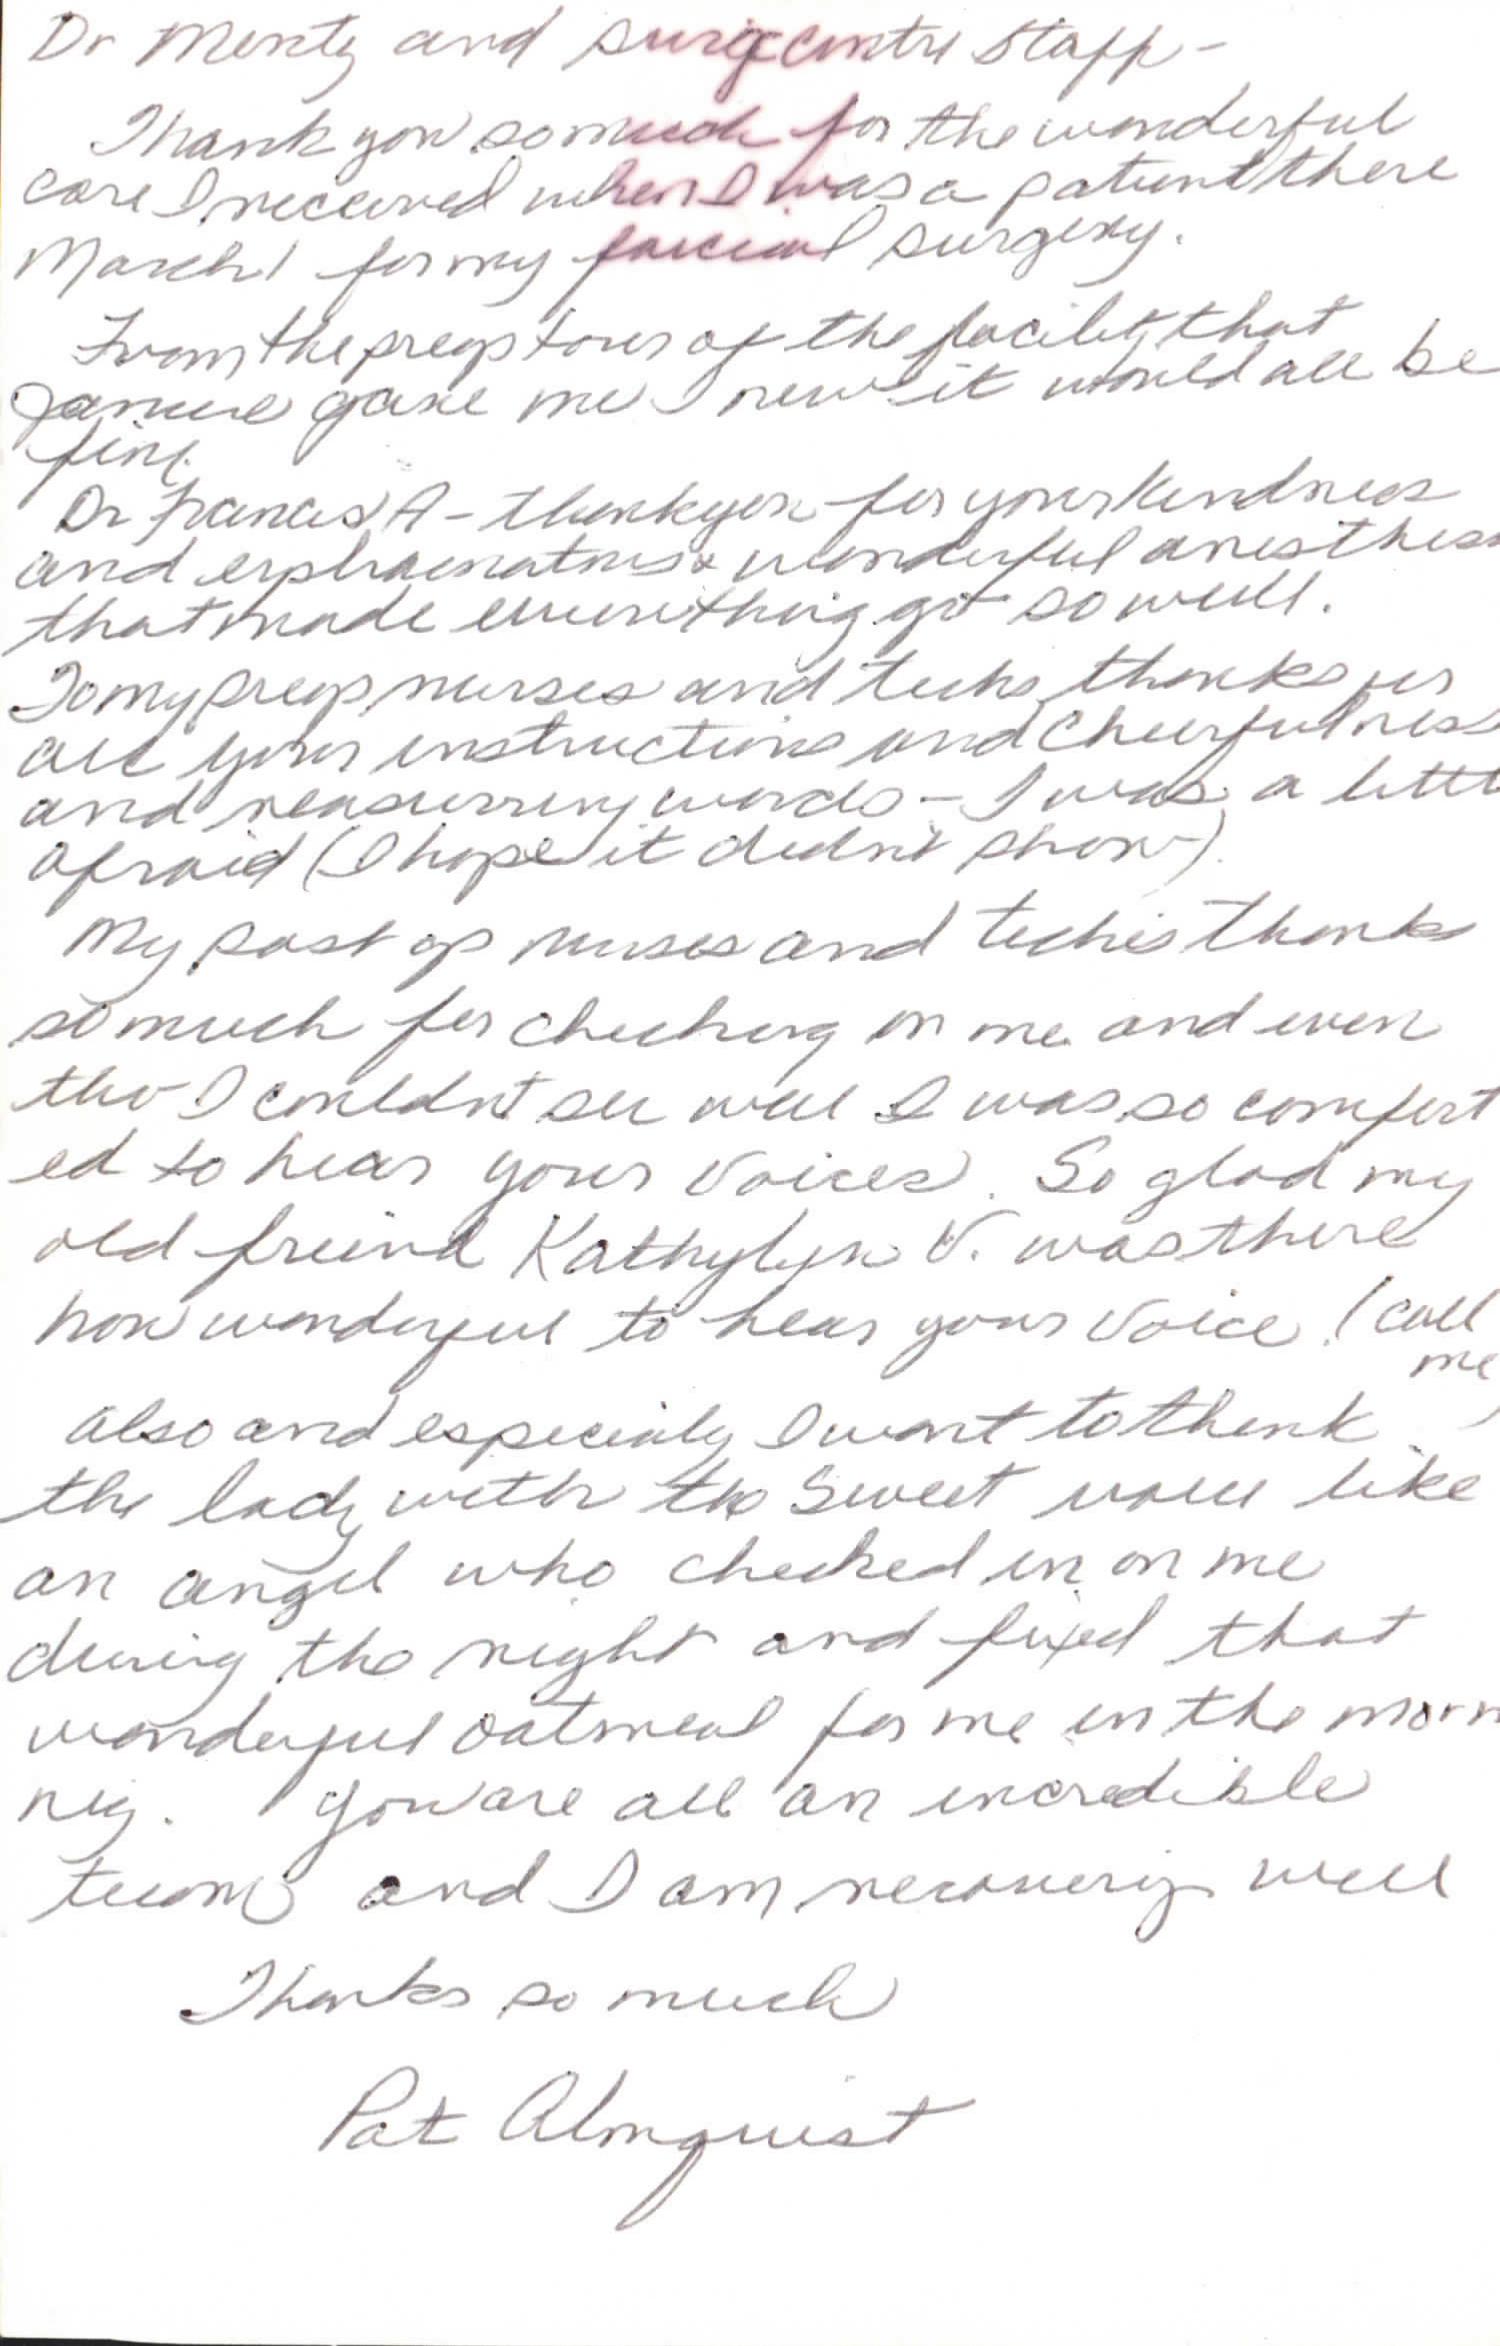 Dr Mentz and surgecentre staff -
Thank you so much for the wonderful
care I received when I was a patient there
March 1 for my faicial surgery.
From the preop tour of the facility that
gave me I new it would all be
fine.
Dr Francis A - thank you for your kindness
and explainations & wonderful anesthes
that made everything go so well.
To my preop nurses and techs thanks for
all your instructions and cheerfulness
and reasurring words - I was a little
afraid (I hope it didn't show).
My post op nurses and techies thanks
so much for checking on me and even
tho I couldn't see well I was so comfort
ed to hear your voices. So glad my
old freind Kathylyn V. was there
how wonderful to hear your voice! (call
me)
also and especialy I want to thank
the lady with the sweet voice like
an angel who checked in on me
during the night and fixed that
wonderful oatmeal for me in the morn
nig. You are all an incredible
team and I am recovering well
Thanks so much
Pat Almquist